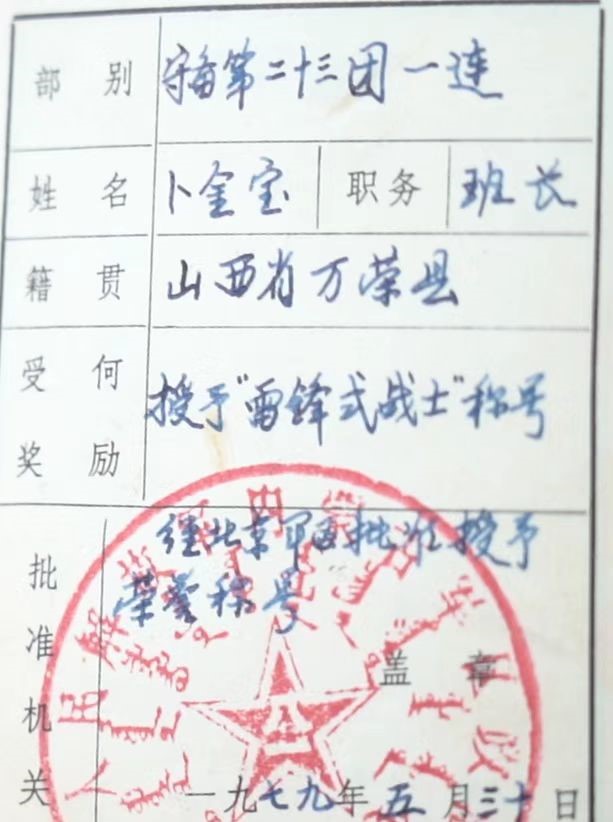 部别 守备第二十三团一连
姓名 卜金宝 职务 班长
籍贯 山西省万荣县
受何奖励 授予"雷锋式战士"称号
批准机关 经北京军区批准授予
荣誉称号
盖章
一九七九年五月三十日